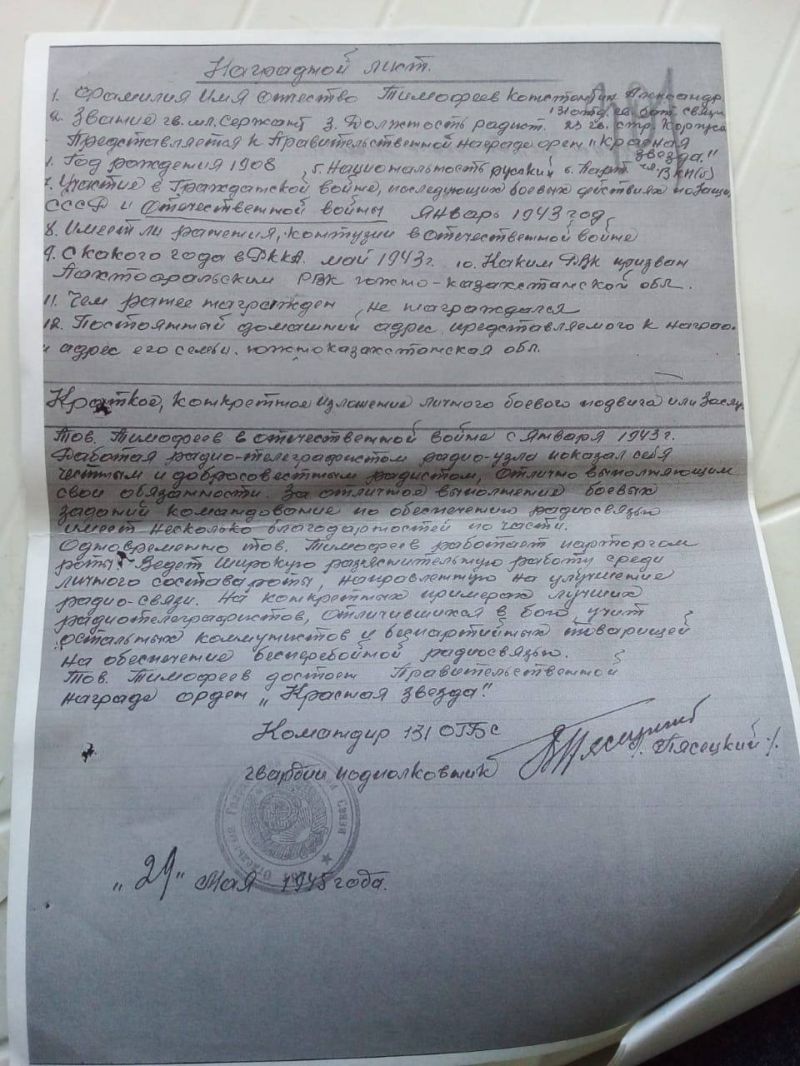 Наградной лист.
1. Фамилия Имя Отчество Тимофеев Константин Александр
131 отд. гв. бат. связи
2. Звание гв. мл. сержант 3. Должность радист. 23 гв. стр. корпуса
Представляется к Правительственной награде орден "Красная звезда."
Год рождения 1908, 5. Национальность русский 6. Парт ВКП(б)
7. Участие в Гражданской войне, последующих боевых действиях по защи
СССР и Отечественной войны январь 1943 год
8. Имеет ли ранения, контузии в отечественной войне
9. С какого года в РККА май 1943 г. 10. Каким РВК призван
Пахтааральским РВК южно-казахстанской обл.
11. Чем ранее награжден, не награждался
12. Постоянный домашний адрес представляемого к наград.
и адрес его семьи. южноказахстанская обл.
Краткое, конкретное изложение личного боевого подвига или заслу
Тов. Тимофеев в отечественной войне с января 1943 г.
Работая радио-телеграфистом радио-узла показал себя
честным и добросовестным радистом, отлично выполняющим
свои обязанности. За отличное выполнение боевых
заданий командование по обеспечению радиосвязью
имеет несколько благодарностей по части.
Одновременно тов. Тимофеев работает парторгом
роты. Ведет широкую разъяснительную работу среди
личного состава роты, направленную на улучшение
радио-связи. На конкретных примерах лучших
радиотелеграфистов, отличившихся в бою, учит
остальных коммунистов и беспартийных товарищей
на обеспечение бесперебойной радиосвязью.
Тов. Тимофеев достоен Правительственной
награде орден "Красная звезда."
Командир 131 ОГБС
гвардии подполковник /. Пясецкий ./.
"29" мая 1945 года.